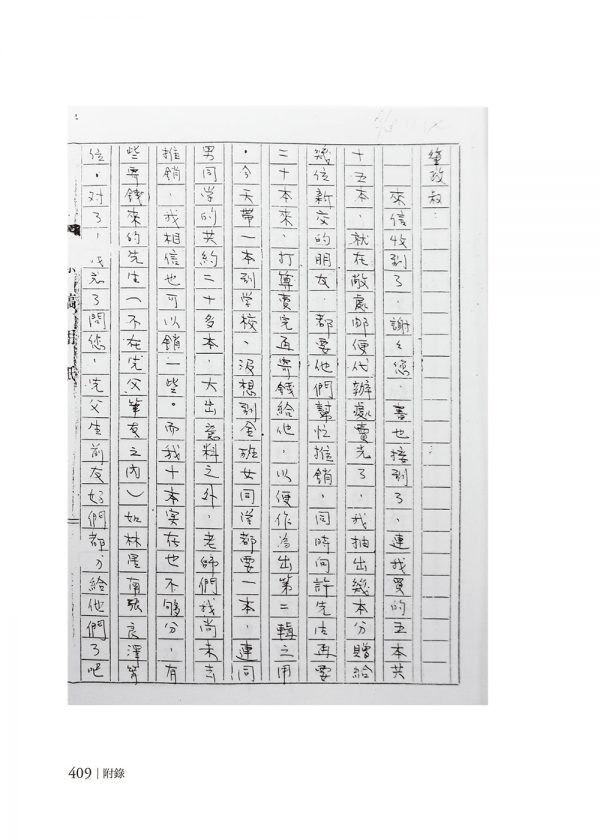 肇政叔：
來信收到了，謝々您，書也接到了，連我買的五本共
十五本，就在敝處郵便代辦處賣光了，我抽出幾本分贈給
幾位新交的朋友，都要他們幫忙推銷，同時向許先生再要
二十本來，打算賣完再寄錢給他，以便作為出第二輯之用
。今天帶一本到学校，沒想到全班女同学都要一本，連同
男同学的共約二十多本，大出意料之外，老師們找尚未去
推銷，我相信也可以銷一些。而我十本实在也不够分，有
些寄錢來的先生（不在先父筆友之內）如林 南張良澤等
位。对了，忘了問您，先父生前友好們都分給他們了吧
稿用紙
409｜附錄